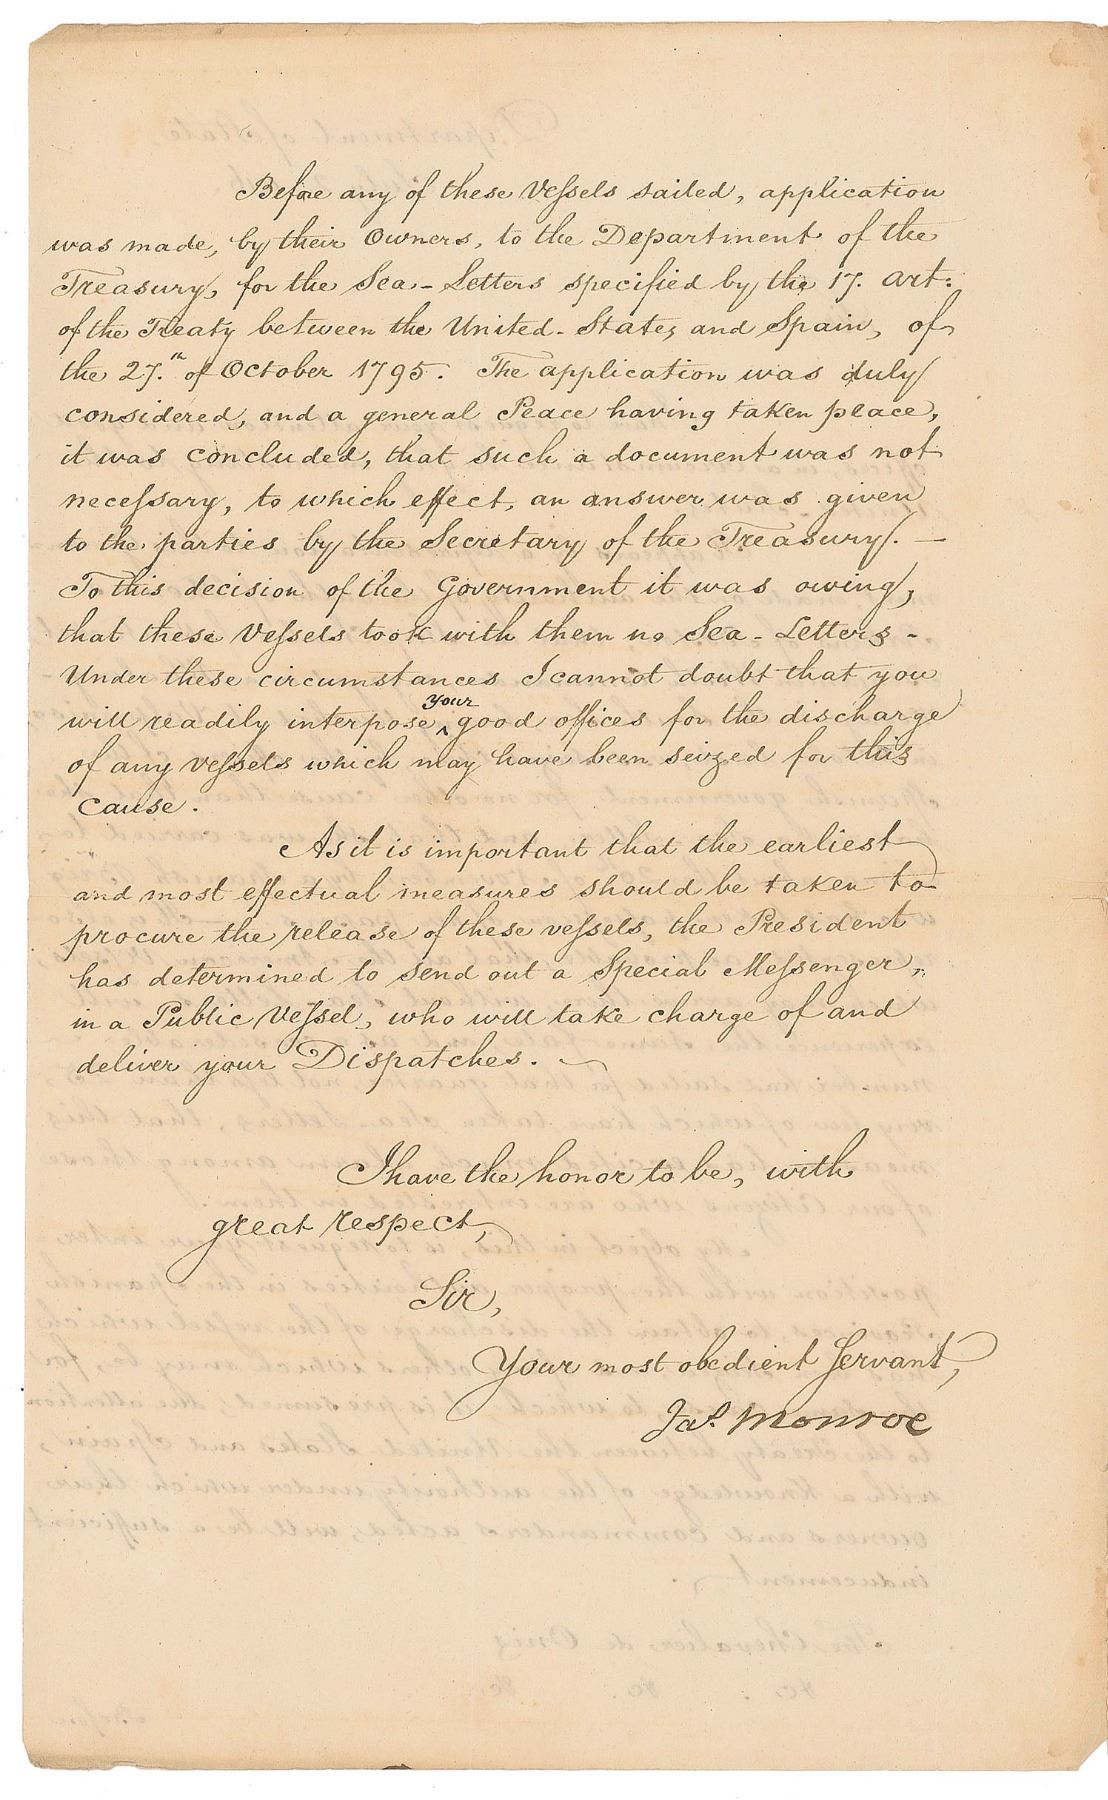 Before any of these Vessels sailed, application
was made, by their Owners, to the Department of the
Treasury, for the Sea-Letters specified by the 17. Art:
of the Treaty between the United-States and Spain, of
the 27.th of October 1795. The application was duly
considered, and a general Peace having taken place,
it was concluded, that such a document was not
necessary, to which effect, an answer was given
to the parties by the Secretary of the Treasury. —
To this decision of the Government it was owing,
that these Vessels took with them no Sea-Letters-
Under these circumstances I cannot doubt that you
will readily interpose ^your good offices for the discharge
of any vessels which may have been seized for this
cause.
As it is important that the earliest
and most effectual measures should be taken to
procure the release of these vessels, the President
has determined to send out a Special Messenger,
in a Public Vessel, who will take charge of and
deliver your Dispatches.
I have the honor to be, with
great respect,
Sir,
Your most obedient Servant,
Jas. Monroe